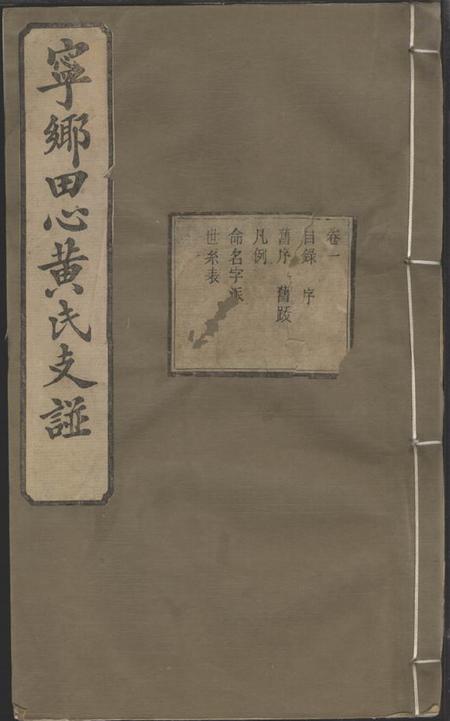 寧鄉田心黃氏支譜
卷一
目錄 序
舊序 舊跋
凡例
命名字派
世系表